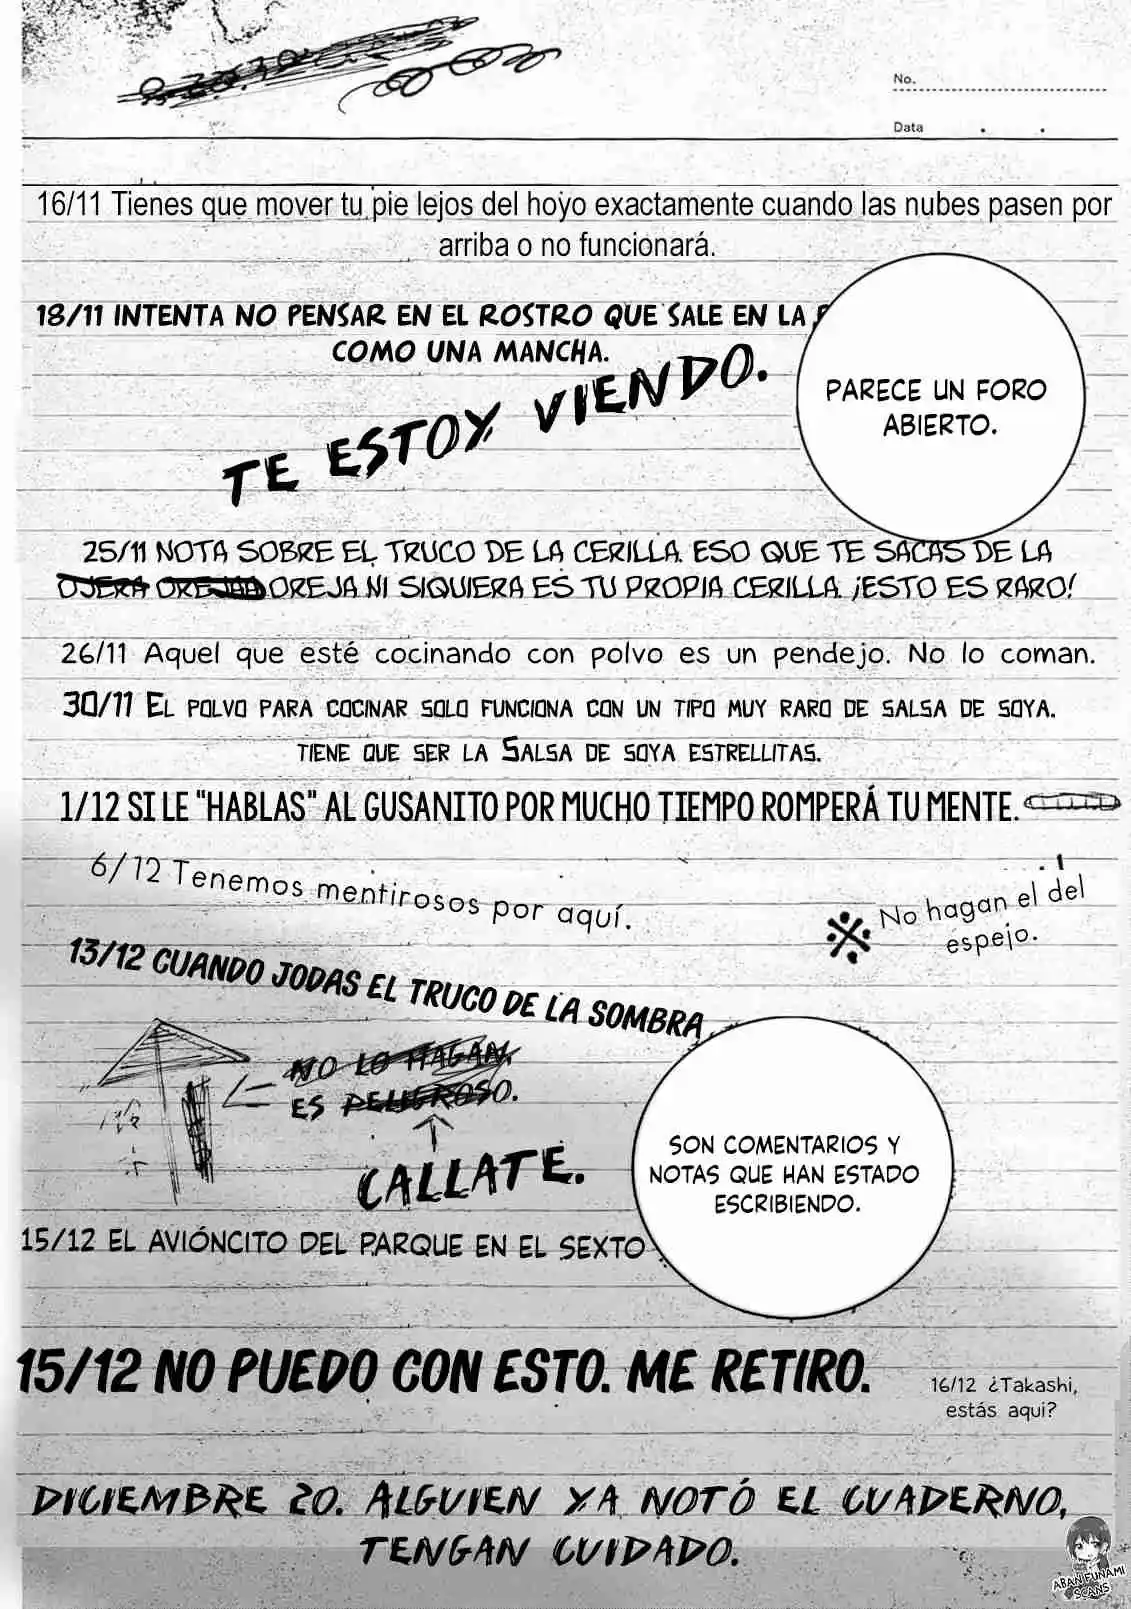 No.
Data . .
16/11 Tienes que mover tu pie lejos del hoyo exactamente cuando las nubes pasen por
arriba o no funcionará.
18/11 INTENTA NO PENSAR EN EL ROSTRO QUE SALE EN LA
COMO UNA MANCHA.
TE ESTOY VIENDO.
PARECE UN FORO
ABIERTO.
25/11 NOTA SOBRE EL TRUCO DE LA CERILLA. ESO QUE TE SACAS DE LA
OJERA OREJAA OREJA NI SIQUIERA ES TU PROPIA CERILLA. ¡ESTO ES RARO!
26/11 Aquel que esté cocinando con polvo es un pendejo. No lo coman.
30/11 EL POLVO PARA COCINAR SOLO FUNCIONA CON UN TIPO MUY RARO DE SALSA DE SOYA.
TIENE QUE SER LA SALSA DE SOYA ESTRELLITAS.
1/12 SI LE "HABLAS" AL GUSANITO POR MUCHO TIEMPO ROMPERÁ TU MENTE.
6/12 Tenemos mentirosos por aquí.
※ No hagan el del
espejo.
13/12 CUANDO JODAS EL TRUCO DE LA SOMBRA
NO LO HAGAN.
ES PELIGROSO.
CALLATE.
SON COMENTARIOS Y
NOTAS QUE HAN ESTADO
ESCRIBIENDO.
15/12 EL AVIÓNCITO DEL PARQUE EN EL SEXTO
15/12 NO PUEDO CON ESTO. ME RETIRO.
16/12 ¿Takashi,
estás aqui?
DICIEMBRE 20. ALGUIEN YA NOTÓ EL CUADERNO,
TENGAN CUIDADO.
ABANFUNAMI
SCANS